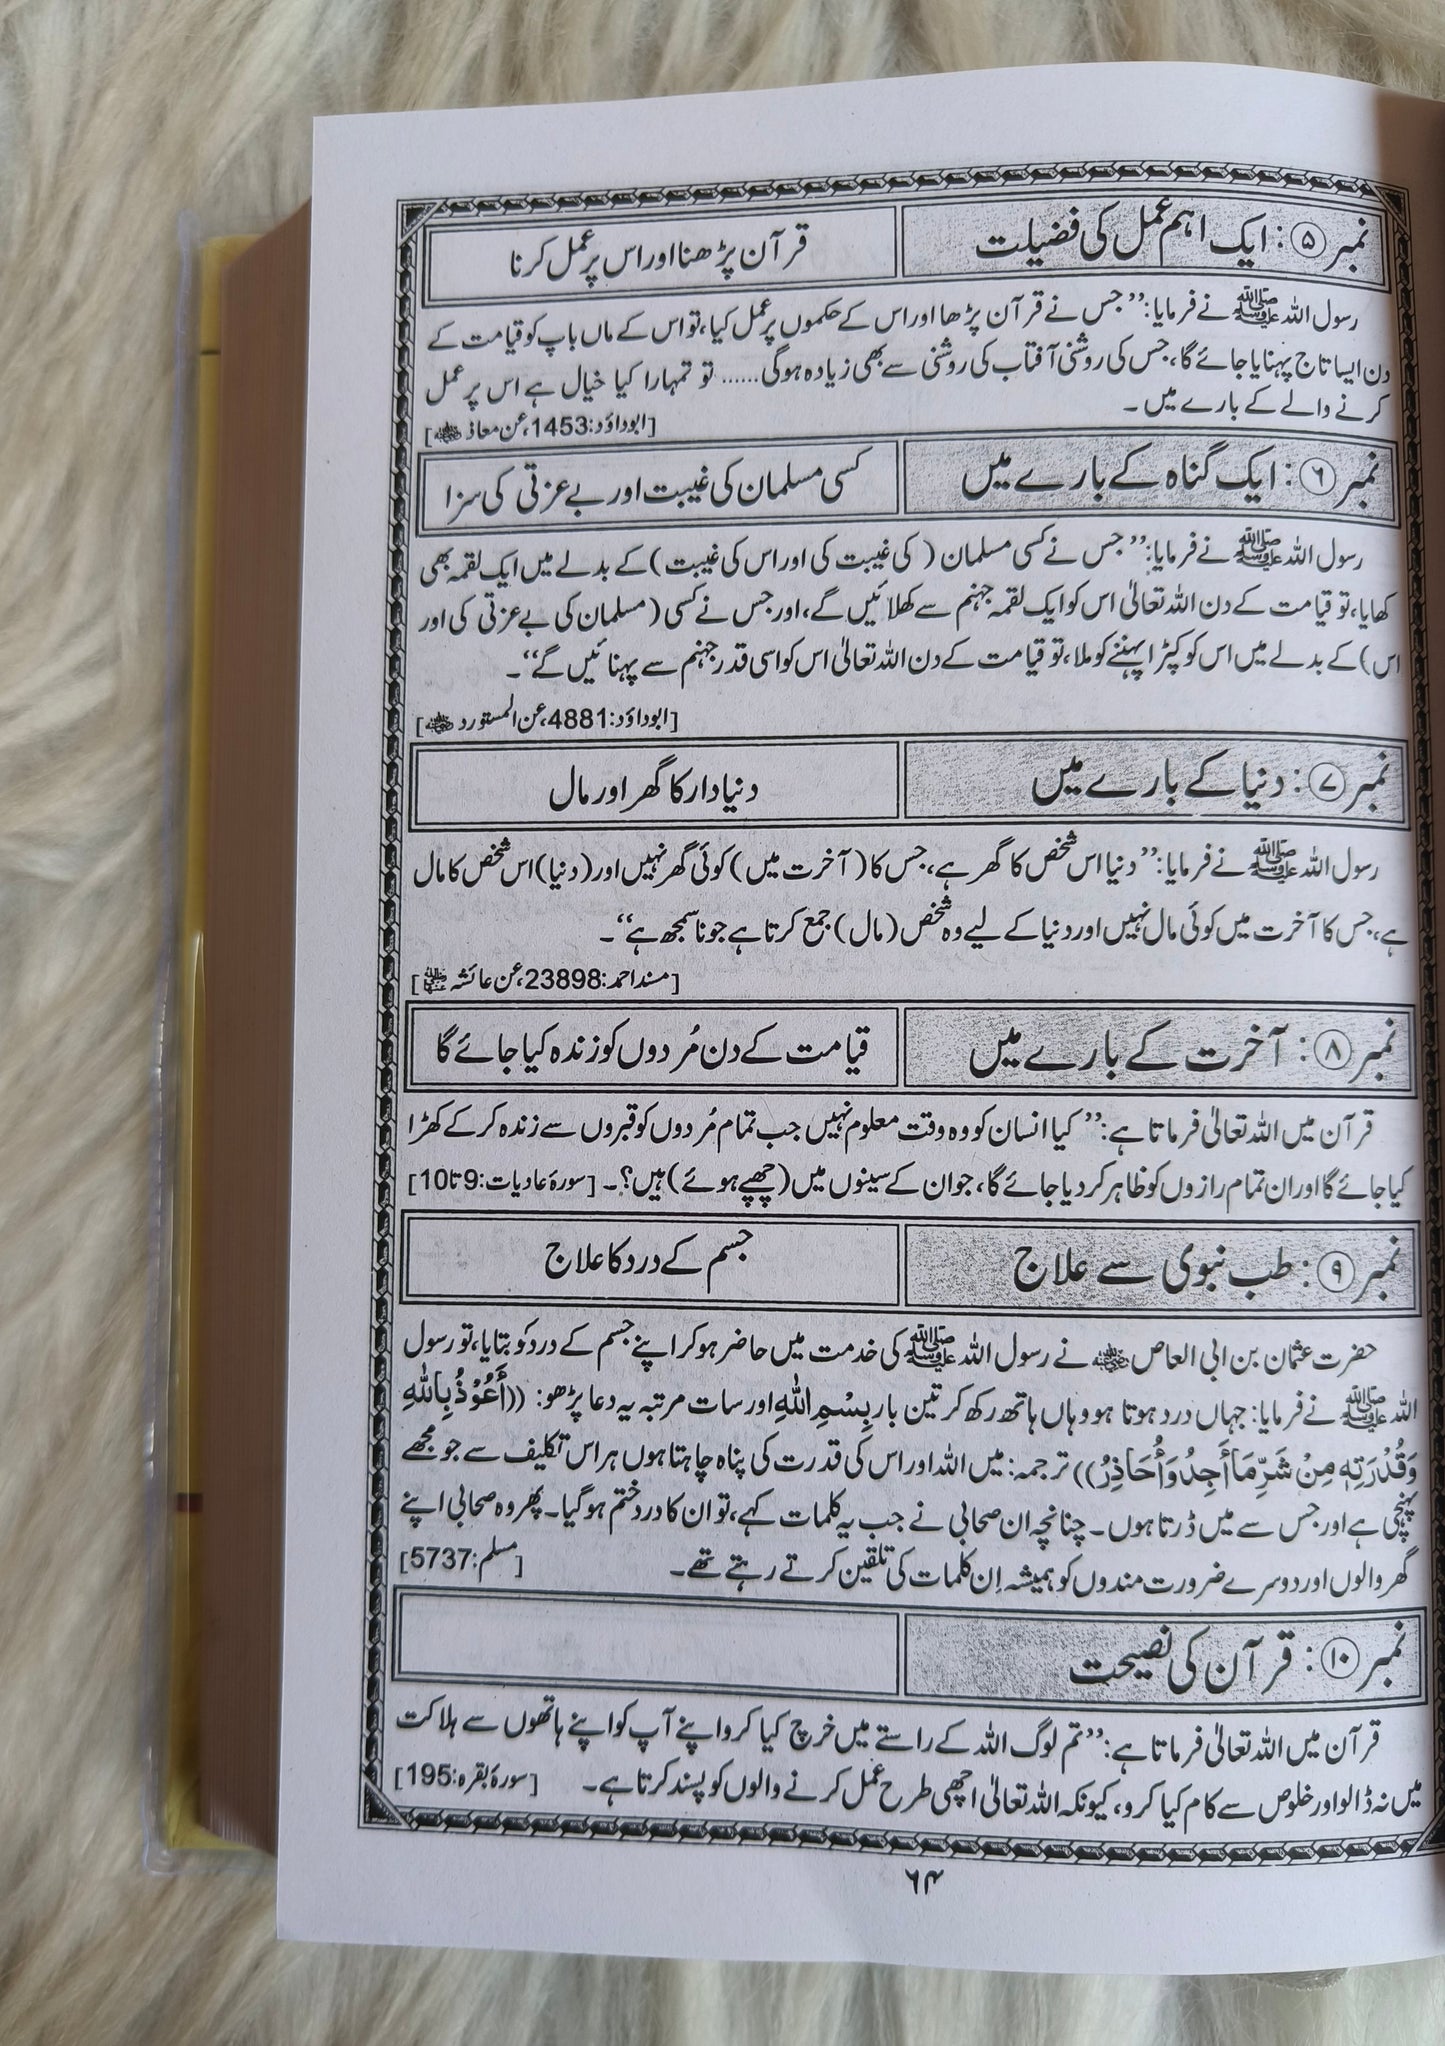 نمبر ۵: ایک اہم عمل کی فضیلت
قرآن پڑھنا اور اس پر عمل کرنا
رسول اللہ ﷺ نے فرمایا: ’’جس نے قرآن پڑھا اور اس کے حکموں پر عمل کیا، تو اس کے ماں باپ کو قیامت کے
دن ایسا تاج پہنایا جائے گا، جس کی روشنی آفتاب کی روشنی سے بھی زیادہ ہوگی...... تو تمہارا کیا خیال ہے اس پر عمل
کرنے والے کے بارے میں۔
[ابوداؤد:1453، عن معاذ ؓ]
نمبر ۶: ایک گناہ کے بارے میں
کسی مسلمان کی غیبت اور بے عزتی کی سزا
رسول اللہ ﷺ نے فرمایا: ’’جس نے کسی مسلمان (کی غیبت کی اور اس کی غیبت) کے بدلے میں ایک لقمہ بھی
کھایا، تو قیامت کے دن اللہ تعالیٰ اس کو ایک لقمہ جہنم سے کھلائیں گے، اور جس نے کسی (مسلمان کی بے عزتی کی اور
اس) کے بدلے میں اس کو کپڑا پہننے کو ملا، تو قیامت کے دن اللہ تعالیٰ اس کو اسی قدر جہنم سے پہنائیں گے‘‘۔
[ابوداؤد:4881، عن المستورد ؓ]
نمبر ۷: دنیا کے بارے میں
دنیا دار کا گھر اور مال
رسول اللہ ﷺ نے فرمایا: ’’دنیا اس شخص کا گھر ہے، جس کا (آخرت میں) کوئی گھر نہیں اور (دنیا) اس شخص کا مال
ہے، جس کا آخرت میں کوئی مال نہیں اور دنیا کے لیے وہ شخص (مال) جمع کرتا ہے جو نا سمجھ ہے‘‘۔
[مسند احمد:23898، عن عائشہ ؓ]
نمبر ۸: آخرت کے بارے میں
قیامت کے دن مُردوں کو زندہ کیا جائے گا
قرآن میں اللہ تعالیٰ فرماتا ہے: ’’کیا انسان کو وہ وقت معلوم نہیں جب تمام مُردوں کو قبروں سے زندہ کر کے کھڑا
کیا جائے گا اور ان تمام رازوں کو ظاہر کر دیا جائے گا، جو ان کے سینوں میں (چھپے ہوئے) ہیں؟۔ [سورۂ عادیات:9تا10]
نمبر ۹: طب نبوی سے علاج
جسم کے درد کا علاج
حضرت عثمان بن ابی العاص ؓ نے رسول اللہ ﷺ کی خدمت میں حاضر ہو کر اپنے جسم کے درد کو بتایا، تو رسول
اللہ ﷺ نے فرمایا: جہاں درد ہوتا ہو وہاں ہاتھ رکھ کر تین بار بِسْمِ اللّٰهِ اور سات مرتبہ یہ دعا پڑھو: ((أَعُوْذُ بِاللّٰهِ
وَقُدْرَتِهٖ مِنْ شَرِّ مَا أَجِدُ وَأُحَاذِرُ)) ترجمہ: میں اللہ اور اس کی قدرت کی پناہ چاہتا ہوں ہر اس تکلیف سے جو مجھے
پہنچی ہے اور جس سے میں ڈرتا ہوں۔ چنانچہ ان صحابی نے جب یہ کلمات کہے، تو ان کا درد ختم ہو گیا۔ پھر وہ صحابی اپنے
گھر والوں اور دوسرے ضرورت مندوں کو ہمیشہ اِن کلمات کی تلقین کرتے رہتے تھے۔ [مسلم:5737]
نمبر ۱۰: قرآن کی نصیحت
قرآن میں اللہ تعالیٰ فرماتا ہے: ’’تم لوگ اللہ کے راستے میں خرچ کیا کرو اپنے آپ کو اپنے ہاتھوں سے ہلاکت
میں نہ ڈالو اور خلوص سے کام کیا کرو، کیونکہ اللہ تعالیٰ اچھی طرح عمل کرنے والوں کو پسند کرتا ہے۔ [سورۂ بقرہ:195]
۶۴